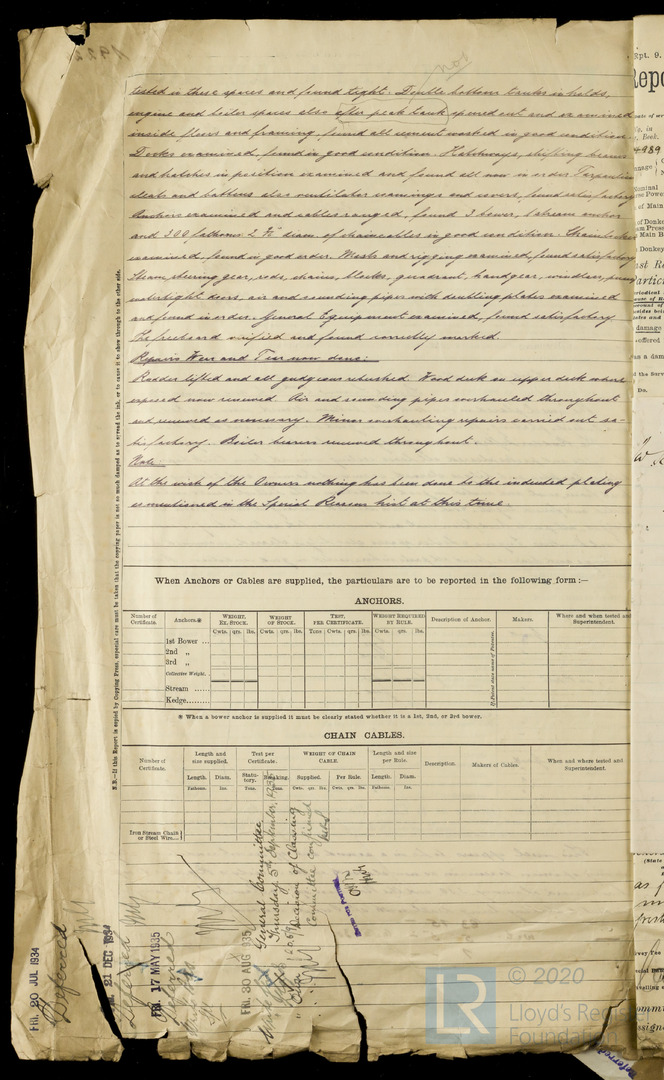 not
tested in these spaces and found tight. Double bottom tanks in holds,
engine and boiler spaces also after peak tank opened out and examined
inside floors and framing, found all cement washed in good condition.
Decks examined, found in good condition. Hatchways, shifting beams
and hatches in position examined and found all now in order Tarpaulins
cleats and battens also ventilator coamings and covers, found satisfactory
Anchors examined and cables ranged, found 3 bower, 1 stream anchor
and 300 fathoms 2 diam. of chaincables in good condition. Chainlocker
examined, found in good order. Masts and rigging examined, found satisfactory
Steam steering gear, rods, chains, blocks, quadrant, handgear, windlass, pumps
watertight doors, air and sounding pipes with doubling plates examined
and found in order. General Equipment examined, found satisfactory.
The freeboard verified and found correctly marked.
Repairs Wear and Tear now done:
Rudder lifted and all gudgeons rebushed. Wood deck on upper deck where
exposed now renewed. Air and sounding pipes overhauled throughout
and renewed as necessary. Minor overhauling repairs carried out sa-
tisfactory. Boiler bearers renewed throughout.
Note:
At the wish of the Owners nothing has been done to the indented plating
as mentioned in the Special Reason list at this time.
N.B.—If this Report is copied by Copying Press, especial care must be taken that the copying paper is not so much damped as to spread the ink, or to cause it to show through to the other side.
When Anchors or Cables are supplied, the particulars are to be reported in the following form :—
ANCHORS.
Number of Certificate.
Anchors.*
WEIGHT, EX. STOCK.
WEIGHT OF STOCK.
TEST, PER CERTIFICATE.
WEIGHT REQUIRED BY RULE.
Description of Anchor.
Makers.
Where and when tested and Superintendent.
Cwts. qrs. lbs. Cwts. qrs. lbs. Tons Cwts. qrs. lbs. Cwts. qrs. lbs.
1st Bower ...
2nd „
3rd „
Collective Weight.
Stream ......
Kedge........
If Patent state name of Patentee.
* When a bower anchor is supplied it must be clearly stated whether it is a 1st, 2nd, or 3rd bower.
CHAIN CABLES.
Number of Certificate.
Length and size supplied.
Test per Certificate.
WEIGHT OF CHAIN CABLE.
Length and size per Rule.
Description.
Makers of Cables.
When and where tested and Superintendent.
Length. Diam. Statutory. Breaking. Supplied. Per Rule. Length. Diam.
Fathoms. Ins. Tons. Tons. Cwts. qrs. lbs. Cwts. qrs. lbs. Fathoms. Ins.
Iron Stream Chain or Steel Wire...
FRI. 20 JUL 1934
Deferred
FRI. 21 DEC 1934
Deferred
FRI. 17 MAY 1935
Deferred
FRI. 30 AUG 1935
General Committee
Thursday 5th September, 1935
Decision of Classing
Committee confirmed
Rpt. 9.
4989
© 2020
LR
Lloyd's Register
Foundation